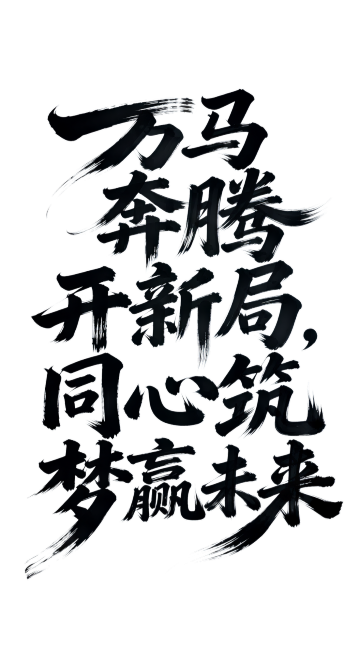 万马
奔腾
开新局，
同心筑
梦赢未来